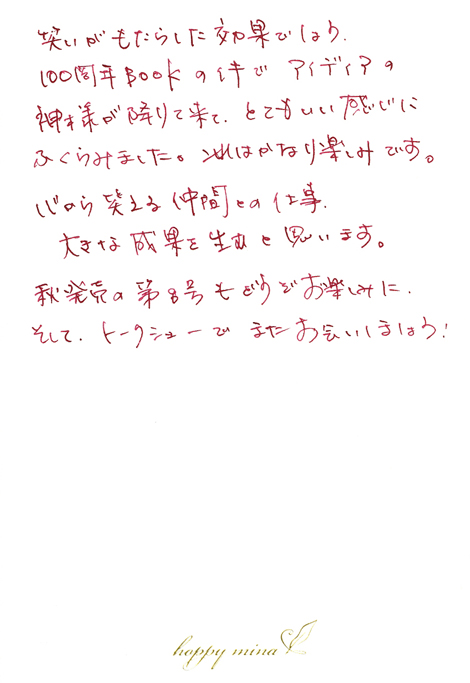 笑いがもたらした効果でしょう.
100周年BOOKの件でアイディアの
神様が降りて来て、とてもいい感じに
ふくらみました。これはかなり楽しみです。
心から笑える仲間との仕事.
大きな成果を生むと思います。
秋発売の第8号もどうぞお楽しみに.
そして、トークショーでまたお会いしましょう!
happy mina